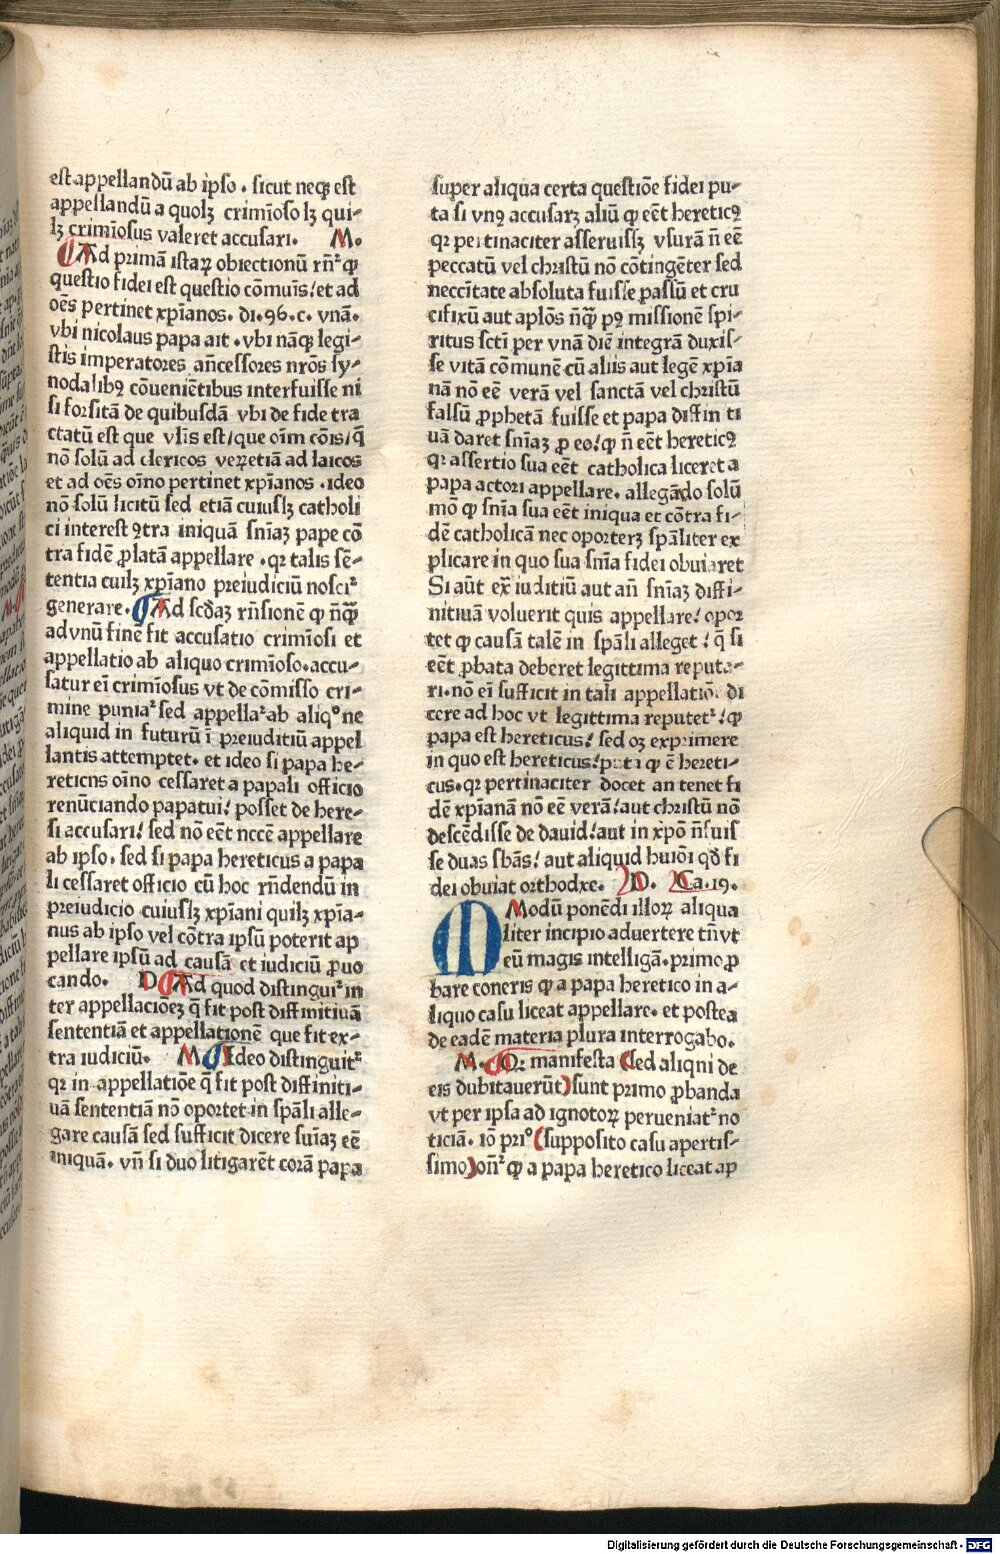 est appellandū ab ipso . sicut neqꝫ est
appellandū a quolꝫ crimīoso lꝫ qui-
lꝫ crimīosus valeret accusari. M.
Ad primā istaꝝ obiectionū rn̄ꝰ ꝙ
questio fidei est questio cōmuīs/et ad
oēs pertinet xp̄ianos. di.96.c. vnā.
vbi nicolaus papa ait .vbi nāqꝫ legi-
stis imperatores an̄cessores nr̄os sy-
nodalibꝰ cōueniētibus interfuisse ni
si forsitā de quibusdā vbi de fide tra
ctatū est que vl̄is est/que oīm cōis/q̄
nō solū ad clericos veꝝetiā ad laicos
et ad oēs oīno pertinet xp̄ianos .ideo
nō solū licitū sed etiā cuiuslꝫ catholi
ci interest ꝯtra iniquā sn̄iaꝫ pape cō
tra fidē ꝓlatā appellare .qꝛ talis sē-
tentia cuilꝫ xp̄iano preiudiciū nosciꝰ
generare. Ad scd̄aꝫ rn̄sionē ꝙ n̄qꝗ
ad vnū finē fit accusatio crimīosi et
appellatio ab aliquo crimīoso.accu-
satur eī crimīosus vt de cōmisso cri-
mine puniaꝰ sed appellaꝰ ab aliqᵒ ne
aliquid in futurū ī preiuditiū appel
lantis attemptet. et ideo si papa he-
reticns oīno cessaret a papali officio
renūciando papatui! posset de here-
si accusari! sed nō eēt nccē appellare
ab ipso. sed si papa hereticus a papa
li cessaret officio cū hoc rn̄dendū in
preiudicio cuiuslꝫ xp̄iani quilꝫ xp̄ia-
nus ab ipso vel cōtra ipsū poterit ap
pellare ipsū ad causā et iudiciū ꝓuo
cando. D Ad quod distinguiꝰ in
ter appellaciōeꝫ q̄ fit post diffinitiuā
sententiā et appellationē que fit ex-
tra iudiciū. M Ideo distinguitꝰ
qꝛ in appellatiōe q̄ fit post diffiniti-
uā sententiā nō oportet in spāli alle-
gare causā sed sufficit dicere suīaꝫ eē
iniquā. vn̄ si duo litigarēt corā papa
super aliqua certa questiōe fidei pu-
ta si vnꝰ accusarꝫ aliū ꝙ eēt hereticꝰ
qꝛ pertinaciter asseruissꝫ vsurā n̄ eē
peccatū vel christū nō cōtingēter sed
neccītate absoluta fuisse passū et cru
cifixū aut ap̄los n̄qꝗ pꝰ missionē spi-
ritus sctī per vnā diē integrā duxis-
se vitā cōmunē cū aliis aut legē xp̄ia
nā nō eē verā vel sanctā vel christū
falsū ꝓphetā fuisse et papa diffin ti
uā daret sn̄iaꝫ ꝓ eo!ꝙ n̄ eēt hereticꝰ
qꝛ assertio sua eēt catholica liceret a
papa actori appellare. allegādo solū
mō ꝙ sn̄ia sua eēt iniqua et cōtra fi-
dē catholicā nec oporterꝫ spāliter ex
plicare in quo sua sn̄ia fidei obuiaret
Si aūt ex̄ iuditiū aut an̄ sn̄iaꝫ diffi-
nitiuā voluerit quis appellare! opor
tet ꝙ causā talē in spāli alleget ! q̄ si
eēt ꝓbata deberet legittima reputa-
ri.nō eī sufficit in tali appellatiō. di
cere ad hoc vt legittima reputetꝰ!ꝙ
papa est hereticus! sed oꝫ exprimere
in quo est hereticus!puta ꝙ ē hereti-
cus.qꝛ pertinaciter docet an tenet fi
dē xp̄ianā nō eē verā!aut christū nō
descēdisse de dauid!aut in xp̄o n̄ fuis
se duas sb̄as! aut aliquid huiōi qd̄ fi
dei obuiat orthodxe. D. Ca.19.
Modū ponēdi illoꝝ aliqua
liter incipio aduertere tn̄ vt
eū magis intelligā.primo ꝓ
bare coneris ꝙ a papa heretico in a-
liquo casu liceat appellare. et postea
de eadē materia plura interrogabo.
M. Qꝛ manifesta sed aliqni de
eis dubitauerūt)sunt primo ꝓbanda
vt per ipsa ad ignotoꝝ perueniatꝰ no
ticiā. iō priᵒ(supposito casu apertis-
simo)on̄ꝰ ꝙ a papa heretico liceat ap
Digitalisierung gefördert durch die Deutsche Forschungsgemeinschaft - DFG